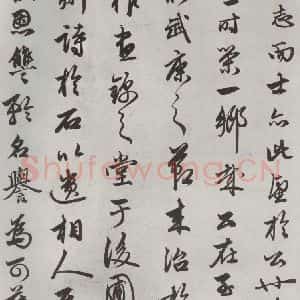 志而士亦此望於公
一時榮一鄉哉公在至
武康之節来治於
作晝錦之堂于後圃
詩於石以遺相人
恩讎矜名譽為可薄
Shufawang.CN